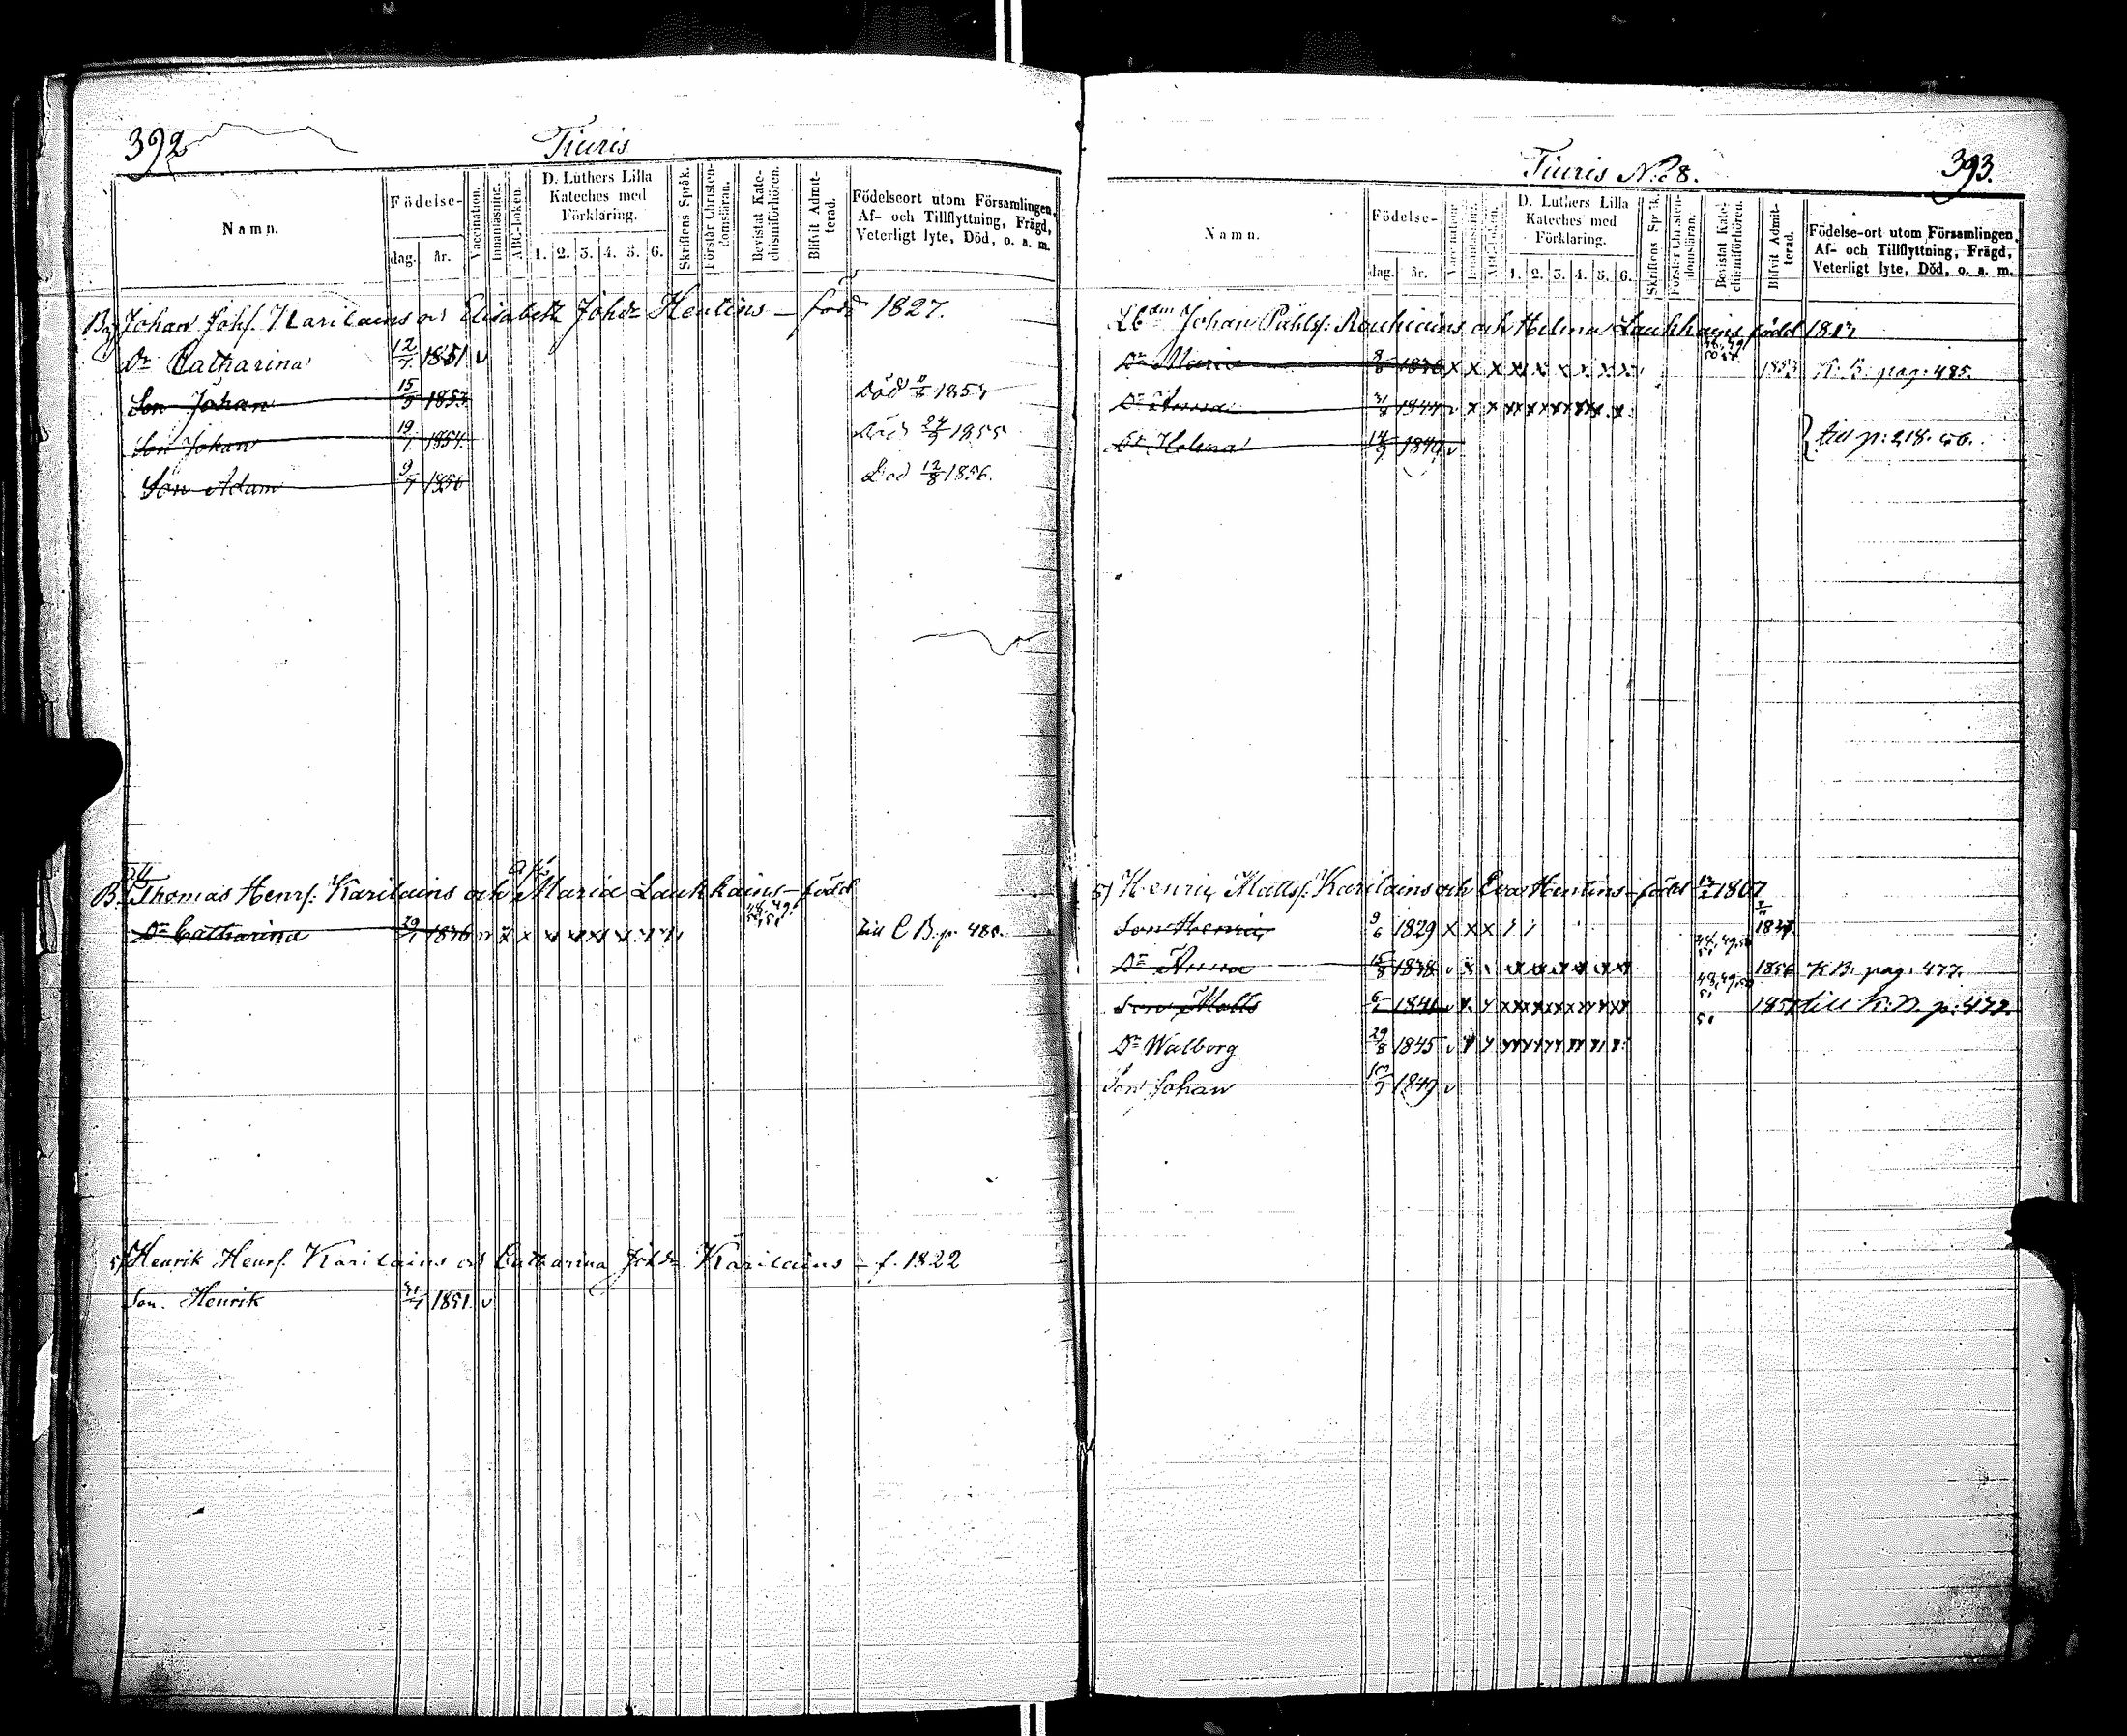 392
Tiuris
Namn.
Födelse-
dag. år.
Vaccination.
Innanläsning.
ABC-boken.
D. Luthers Lilla
Kateches med
Förklaring.
1. 2. 3. 4. 5. 6.
Skriftens Språk.
Förstår Christen-
domsläran.
Bevistat Kate-
chismiförhören.
Blifvit Admit-
terad.
Födelseort utom Församlingen,
Af- och Tillflyttning, Frägd,
Veterligt lyte, Död, o. a. m.
Johan Johs. Karilains och Elisabeth Johdr Hentins – född 1827.
Dr Catharina 12/7 1851 v
Son Johan 15/5 1853 Död 1853
Son Johan 19/7 1854 Död 24/9 1855
Son Adam 9/7 1856 Död 12/8 1856.
Thomas Henrs. Karilains och Maria Laukkains – född
48, 49,
50, 51
Dr Catharina 29/7 1836 x x till C B. p. 480.
5/ Henrik Henrs. Karilains och Catharina Johdr Karilains – f. 1822
Son. Henrik 1851. v
393.
Tiuris No 8.
Namn.
Födelse-
dag. år.
Vaccination.
Innanläsning.
ABC-boken.
D. Luthers Lilla
Kateches med
Förklaring.
1. 2. 3. 4. 5. 6.
Skriftens Språk.
Förstår Christen-
domsläran.
Bevistat Kate-
chismiförhören.
Blifvit Admit-
terad.
Födelse-ort utom Församlingen,
Af- och Tillflyttning, Frägd,
Veterligt lyte, Död, o. a. m.
Johan Påhlsf. Rouhiains och Helena Laukkains född
48, 49,
Dr Maria 1836 x x x 1853 K. B. pag. 485.
Dr Anna 1844 v x x
Dr Helena 14/9 1849 v till p. 218.
5/ Henric Mattsf. Karilains och Eva Hentins – född 1807
Son Henric 9/6 1829 x x x
48, 49, 50
51
Dr Anna 15/8 1838 v 1856 K B. pag. 477.
48, 49, 50
51
Son Matts 1841 v till K. B. p. 477.
51
Dr Walborg 29/8 1845 v
Son Johan 1849 v